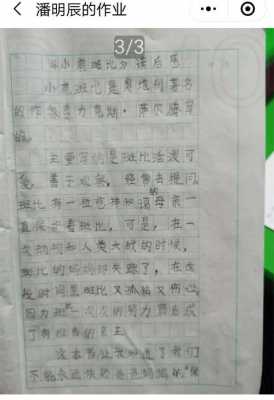 潘明辰的作业
3/3
《小鹿斑比》读后感
小鹿斑比是奥地利著名
的作家费力克斯·萨尔腾写
的。
主要写的是斑比活泼可
爱，善于观察，经常去提问
斑比有一位慈祥和蔼的母亲一
直保护着斑比，可是，在一
次动物和人类大战的时候，
斑比的妈妈却失踪了，在这
段时间里斑比又孤独又伤心
因为斑一次次的努力最后成
了有担当的鹿王
这本书让我知道了我们
不能永远快轻在妈妈的“保